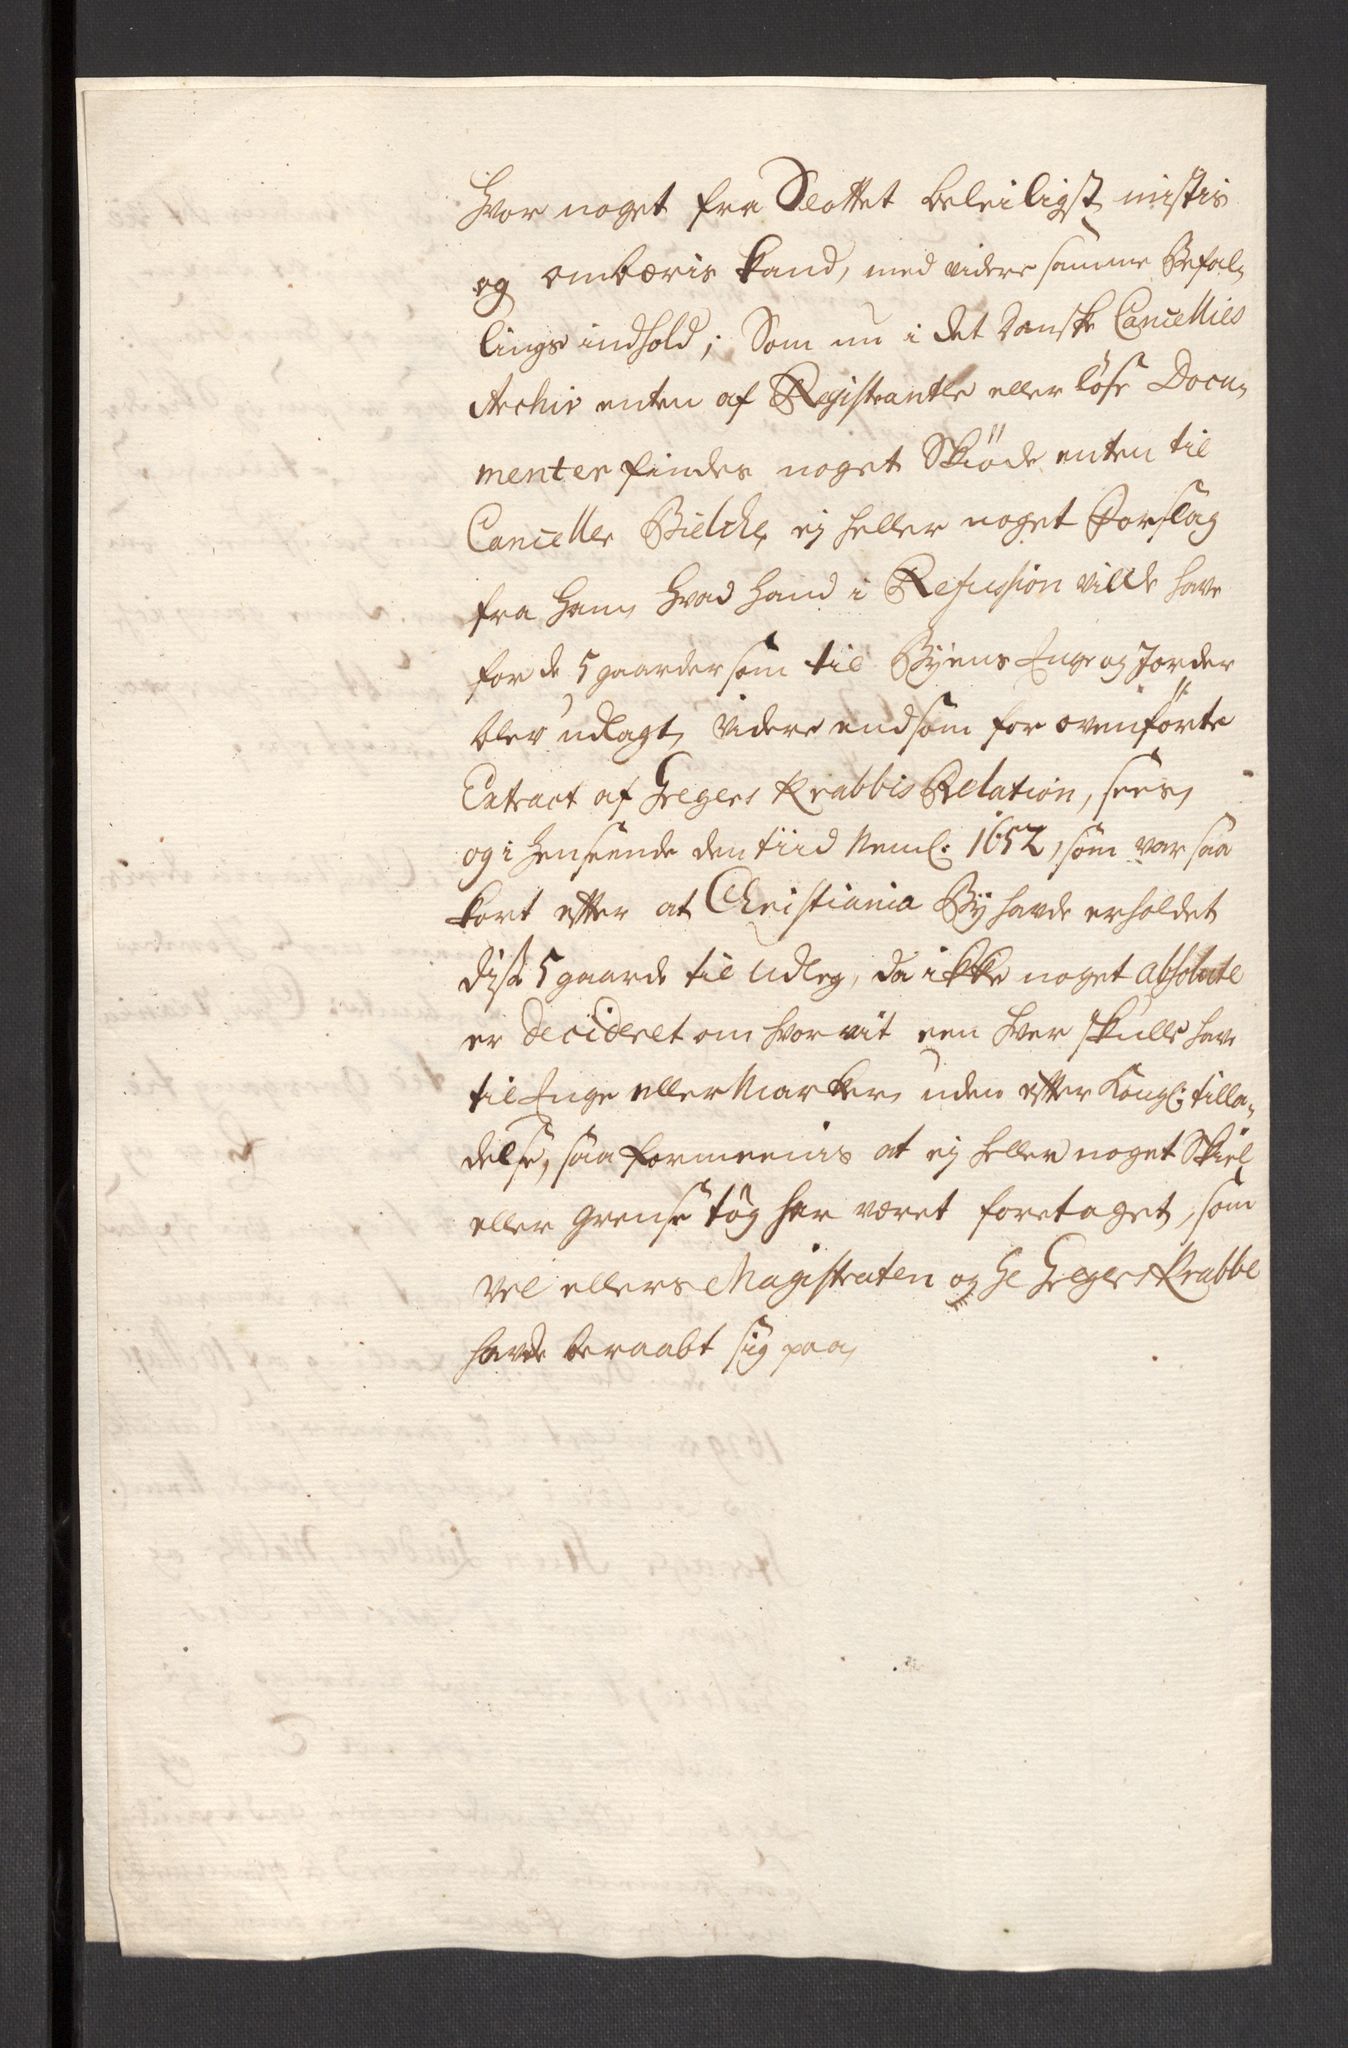 hvor noget fra Slottet beleiligst mistis
og ombæris kand, med videre samme Befal,,
lings indhold; Som nu i det danske Cancellies
Archiv enten af Registrantle eller løse Docu,,
menter findes noget Skiöde enten til
Canceller Bielche, ej heller noget Forslag
fra ham, hvad hand i Refussion vilde have
for de 5 gaarder som til Byens Enge og Jorder
blev udlagt, videre end som for ovenförte
Extract af Gregers Krabbis Relation, sees,
og i henseende den tiid Neml: 1652, som var saa
kort efter at Christiania By havde erholdet
disse 5 gaarde til Udleg, da ikke noget absolute
er decideret om hvor vit een hver skulle have
til Enge eller Marker, uden efter Kongl: tilla,,
delse, saa formeenis at ej heller noget Skiel
eller grense tög har været foretaget, som
vel ellers Magistraten og Hr Gregers Krabbe
havde beraabt sig paa,